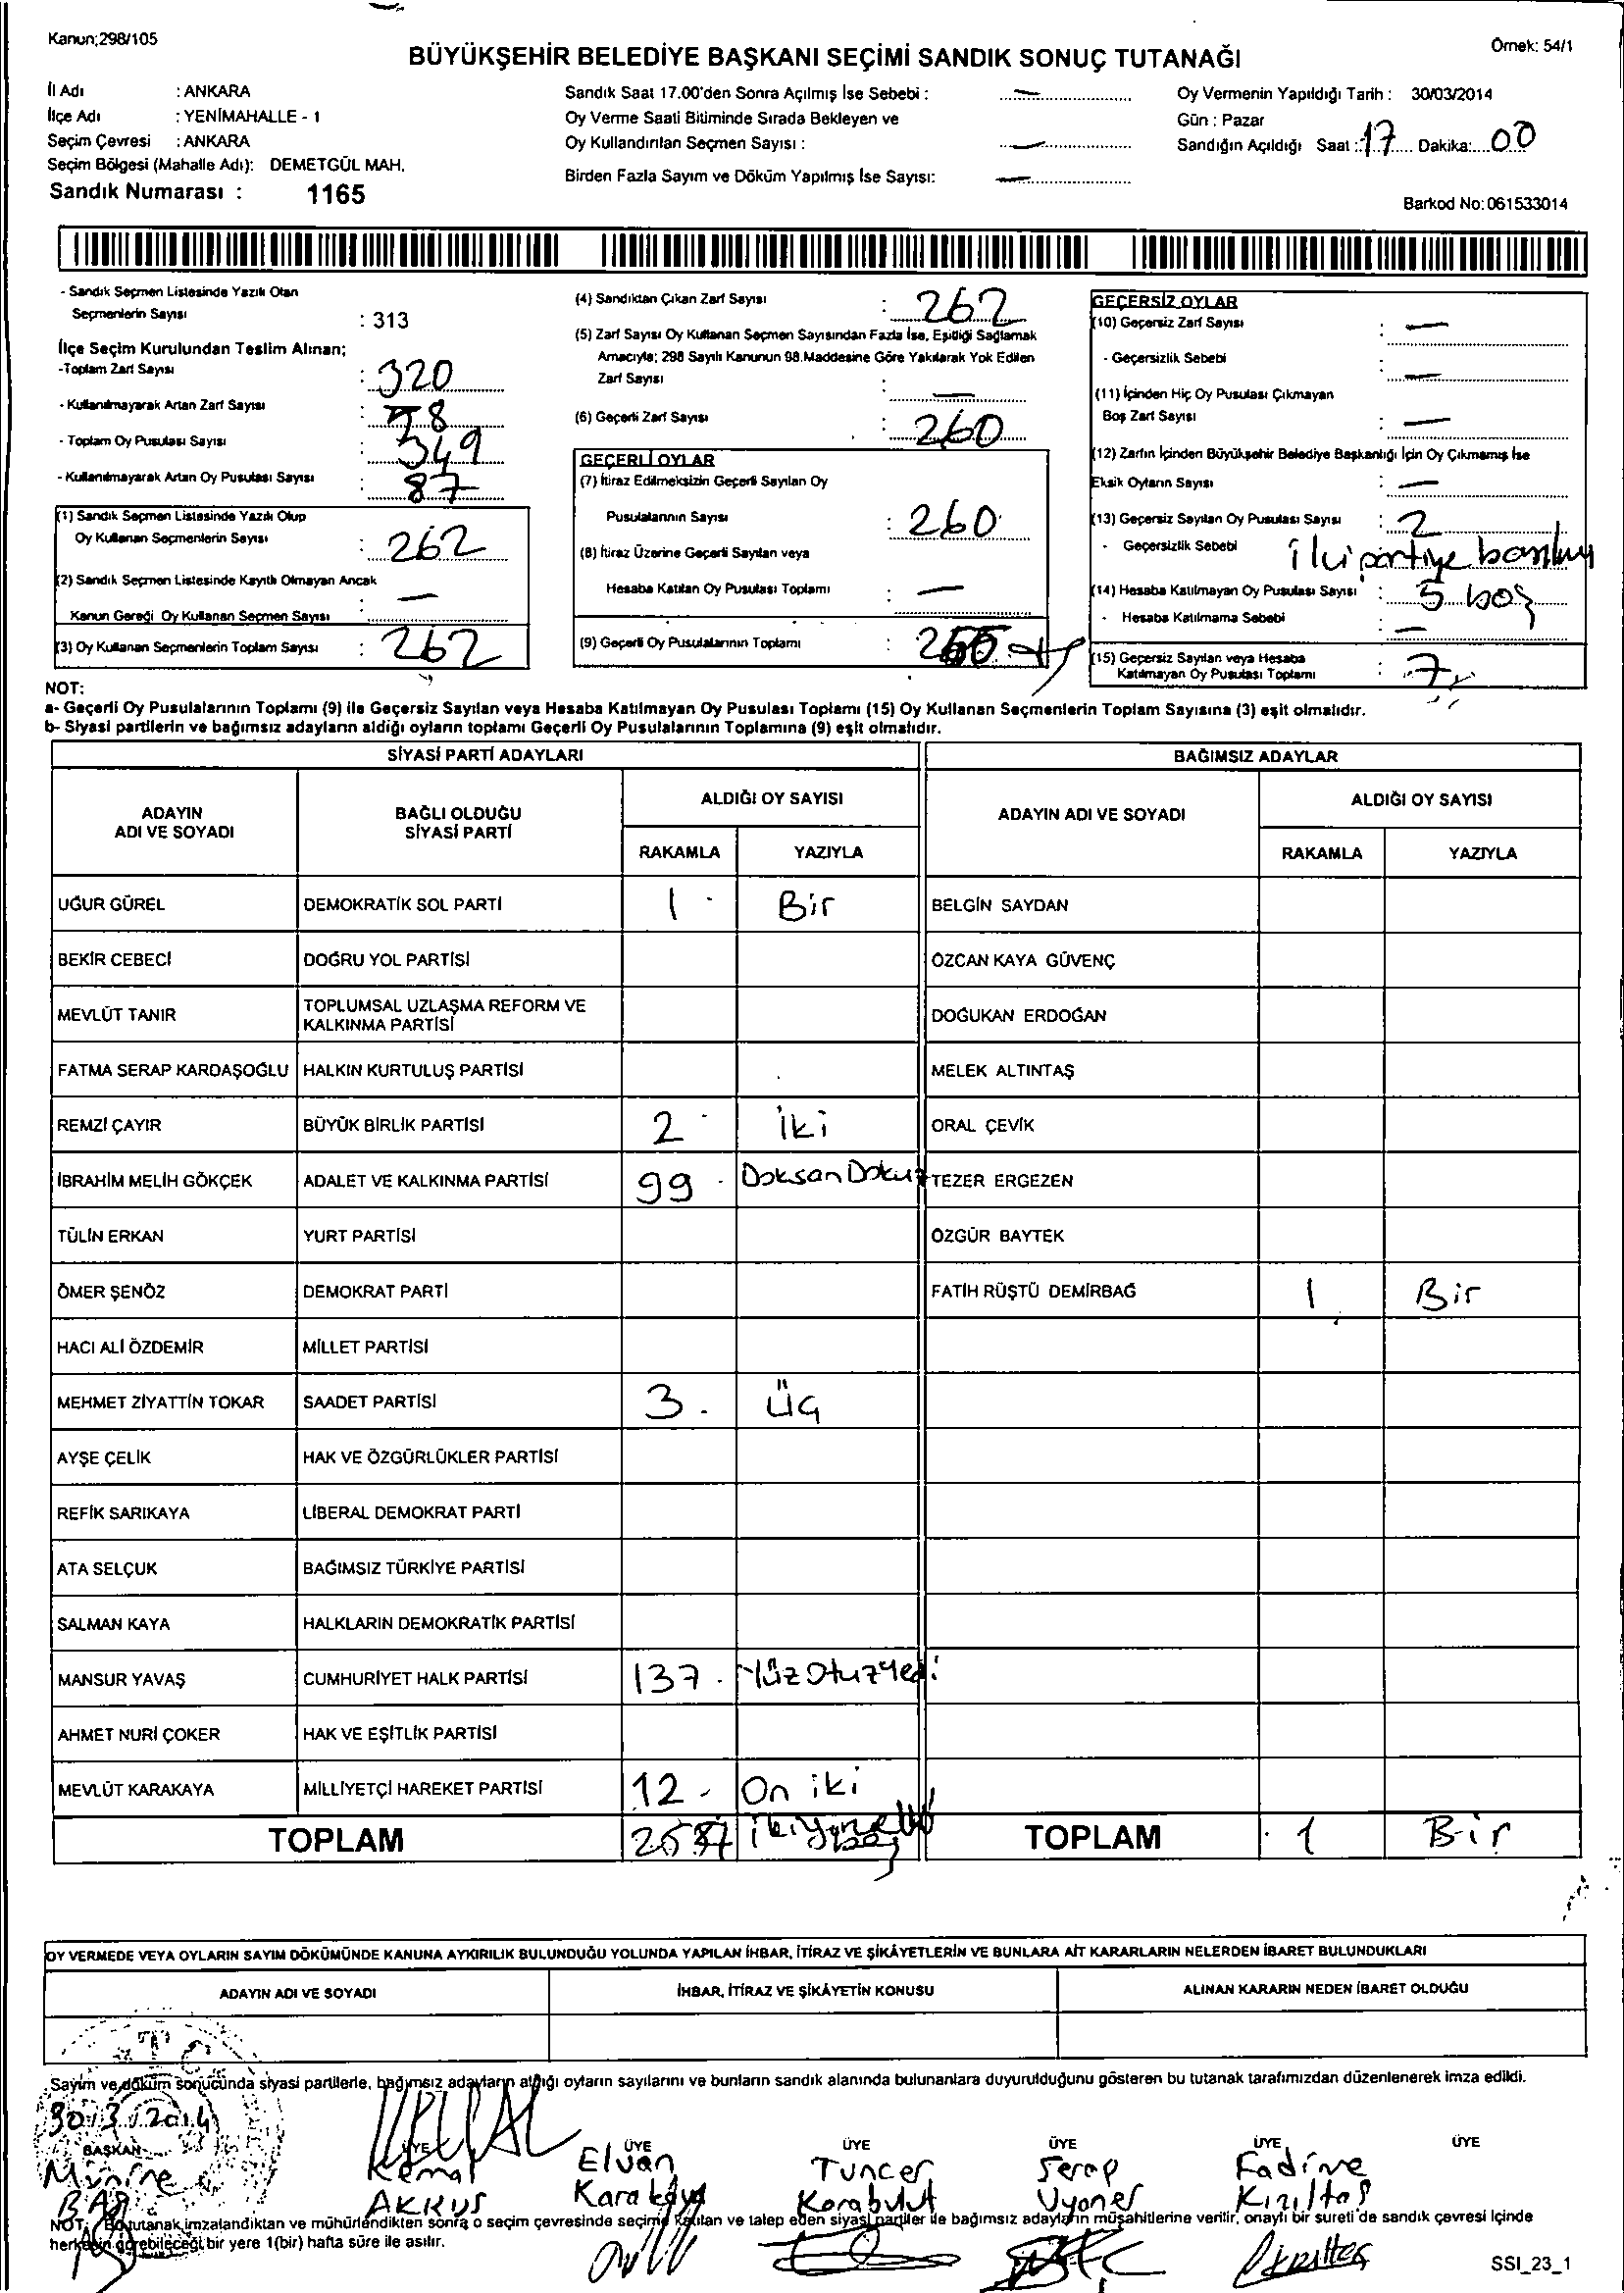 Kanun;298/105
Örnek: 54/1
BÜYÜKŞEHİR BELEDİYE BAŞKANI SEÇİMİ SANDIK SONUÇ TUTANAĞI
İl Adı : ANKARA
İlçe Adı : YENİMAHALLE - 1
Seçim Çevresi : ANKARA
Seçim Bölgesi (Mahalle Adı): DEMETGÜL MAH.
Sandık Numarası : 1165
Sandık Saat 17.00'den Sonra Açılmış İse Sebebi : —
Oy Verme Saati Bitiminde Sırada Bekleyen ve
Oy Kullandırılan Seçmen Sayısı : —
Birden Fazla Sayım ve Döküm Yapılmış İse Sayısı: —
Oy Vermenin Yapıldığı Tarih : 30/03/2014
Gün : Pazar
Sandığın Açıldığı Saat : 17 Dakika: 00
Barkod No: 061533014
- Sandık Seçmen Listesinde Yazılı Olan
Seçmenlerin Sayısı : 313
İlçe Seçim Kurulundan Teslim Alınan;
-Toplam Zarf Sayısı : 320
- Kullanılmayarak Artan Zarf Sayısı : 58
- Toplam Oy Pusulası Sayısı : 349
- Kullanılmayarak Artan Oy Pusulası Sayısı : 87
(1) Sandık Seçmen Listesinde Yazılı Olup
Oy Kullanan Seçmenlerin Sayısı : 262
(2) Sandık Seçmen Listesinde Kayıtlı Olmayan Ancak
Kanun Gereği Oy Kullanan Seçmen Sayısı : —
(3) Oy Kullanan Seçmenlerin Toplam Sayısı : 262
(4) Sandıktan Çıkan Zarf Sayısı : 262
(5) Zarf Sayısı Oy Kullanan Seçmen Sayısından Fazla İse, Eşitliği Sağlamak
Amacıyla; 298 Sayılı Kanunun 98.Maddesine Göre Yakılarak Yok Edilen
Zarf Sayısı : —
(6) Geçerli Zarf Sayısı : 260
GEÇERLİ OYLAR
(7) İtiraz Edilmeksizin Geçerli Sayılan Oy
Pusulalarının Sayısı : 260
(8) İtiraz Üzerine Geçerli Sayılan veya
Hesaba Katılan Oy Pusulası Toplamı : —
(9) Geçerli Oy Pusulalarının Toplamı : 255
GEÇERSİZ OYLAR
(10) Geçersiz Zarf Sayısı : —
- Geçersizlik Sebebi : —
(11) İçinden Hiç Oy Pusulası Çıkmayan
Boş Zarf Sayısı : —
(12) Zarfın İçinden Büyükşehir Belediye Başkanlığı İçin Oy Çıkmamış İse
Eksik Oyların Sayısı : —
(13) Geçersiz Sayılan Oy Pusulası Sayısı : 2
- Geçersizlik Sebebi iki partiye
(14) Hesaba Katılmayan Oy Pusulası Sayısı : 5 boş
- Hesaba Katılmama Sebebi : —
(15) Geçersiz Sayılan veya Hesaba
Katılmayan Oy Pusulası Toplamı : 7
NOT:
a- Geçerli Oy Pusulalarının Toplamı (9) ile Geçersiz Sayılan veya Hesaba Katılmayan Oy Pusulası Toplamı (15) Oy Kullanan Seçmenlerin Toplam Sayısına (3) eşit olmalıdır.
b- Siyasi partilerin ve bağımsız adayların aldığı oyların toplamı Geçerli Oy Pusulalarının Toplamına (9) eşit olmalıdır.
SİYASİ PARTİ ADAYLARI BAĞIMSIZ ADAYLAR
ADAYIN ADI VE SOYADI BAĞLI OLDUĞU SİYASİ PARTİ ALDIĞI OY SAYISI ADAYIN ADI VE SOYADI ALDIĞI OY SAYISI
RAKAMLA YAZIYLA RAKAMLA YAZIYLA
UĞUR GÜREL DEMOKRATİK SOL PARTİ 1 Bir BELGİN SAYDAN
BEKİR CEBECİ DOĞRU YOL PARTİSİ ÖZCAN KAYA GÜVENÇ
MEVLÜT TANIR TOPLUMSAL UZLAŞMA REFORM VE KALKINMA PARTİSİ DOĞUKAN ERDOĞAN
FATMA SERAP KARDAŞOĞLU HALKIN KURTULUŞ PARTİSİ MELEK ALTINTAŞ
REMZİ ÇAYIR BÜYÜK BİRLİK PARTİSİ 2 iki ORAL ÇEVİK
İBRAHİM MELİH GÖKÇEK ADALET VE KALKINMA PARTİSİ 99 Doksan Dokuz TEZER ERGEZEN
TÜLİN ERKAN YURT PARTİSİ ÖZGÜR BAYTEK
ÖMER ŞENÖZ DEMOKRAT PARTİ FATİH RÜŞTÜ DEMİRBAĞ 1 Bir
HACI ALİ ÖZDEMİR MİLLET PARTİSİ
MEHMET ZİYATTİN TOKAR SAADET PARTİSİ 3 Üç
AYŞE ÇELİK HAK VE ÖZGÜRLÜKLER PARTİSİ
REFİK SARIKAYA LİBERAL DEMOKRAT PARTİ
ATA SELÇUK BAĞIMSIZ TÜRKİYE PARTİSİ
SALMAN KAYA HALKLARIN DEMOKRATİK PARTİSİ
MANSUR YAVAŞ CUMHURİYET HALK PARTİSİ 137 Yüz Otuz Yedi
AHMET NURİ ÇOKER HAK VE EŞİTLİK PARTİSİ
MEVLÜT KARAKAYA MİLLİYETÇİ HAREKET PARTİSİ 12 On iki
TOPLAM TOPLAM 1 Bir
OY VERMEDE VEYA OYLARIN SAYIM DÖKÜMÜNDE KANUNA AYKIRILIK BULUNDUĞU YOLUNDA YAPILAN İHBAR, İTİRAZ VE ŞİKÂYETLERİN VE BUNLARA AİT KARARLARIN NELERDEN İBARET BULUNDUKLARI
ADAYIN ADI VE SOYADI İHBAR, İTİRAZ VE ŞİKÂYETİN KONUSU ALINAN KARARIN NEDEN İBARET OLDUĞU
Sayım ve döküm sonucunda siyasi partilerle, bağımsız adayların aldığı oyların sayılarını ve bunların sandık alanında bulunanlara duyurulduğunu gösteren bu tutanak tarafımızdan düzenlenerek imza edildi.
30/3/2014
BAŞKAN ÜYE ÜYE ÜYE ÜYE ÜYE ÜYE
Münire Kemal Elvan Tuncer Serap Fadime
AKKUŞ Karakaya Karabulut Uyaner Kızıltaş
NOT: Bu tutanak imzalandıktan ve mühürlendikten sonra o seçim çevresinde seçime katılan ve talep eden siyasi partiler ile bağımsız adayların müşahitlerine verilir, onaylı bir sureti de sandık çevresi içinde
herkesin görebileceği bir yere 1(bir) hafta süre ile asılır.
SSI_23_1